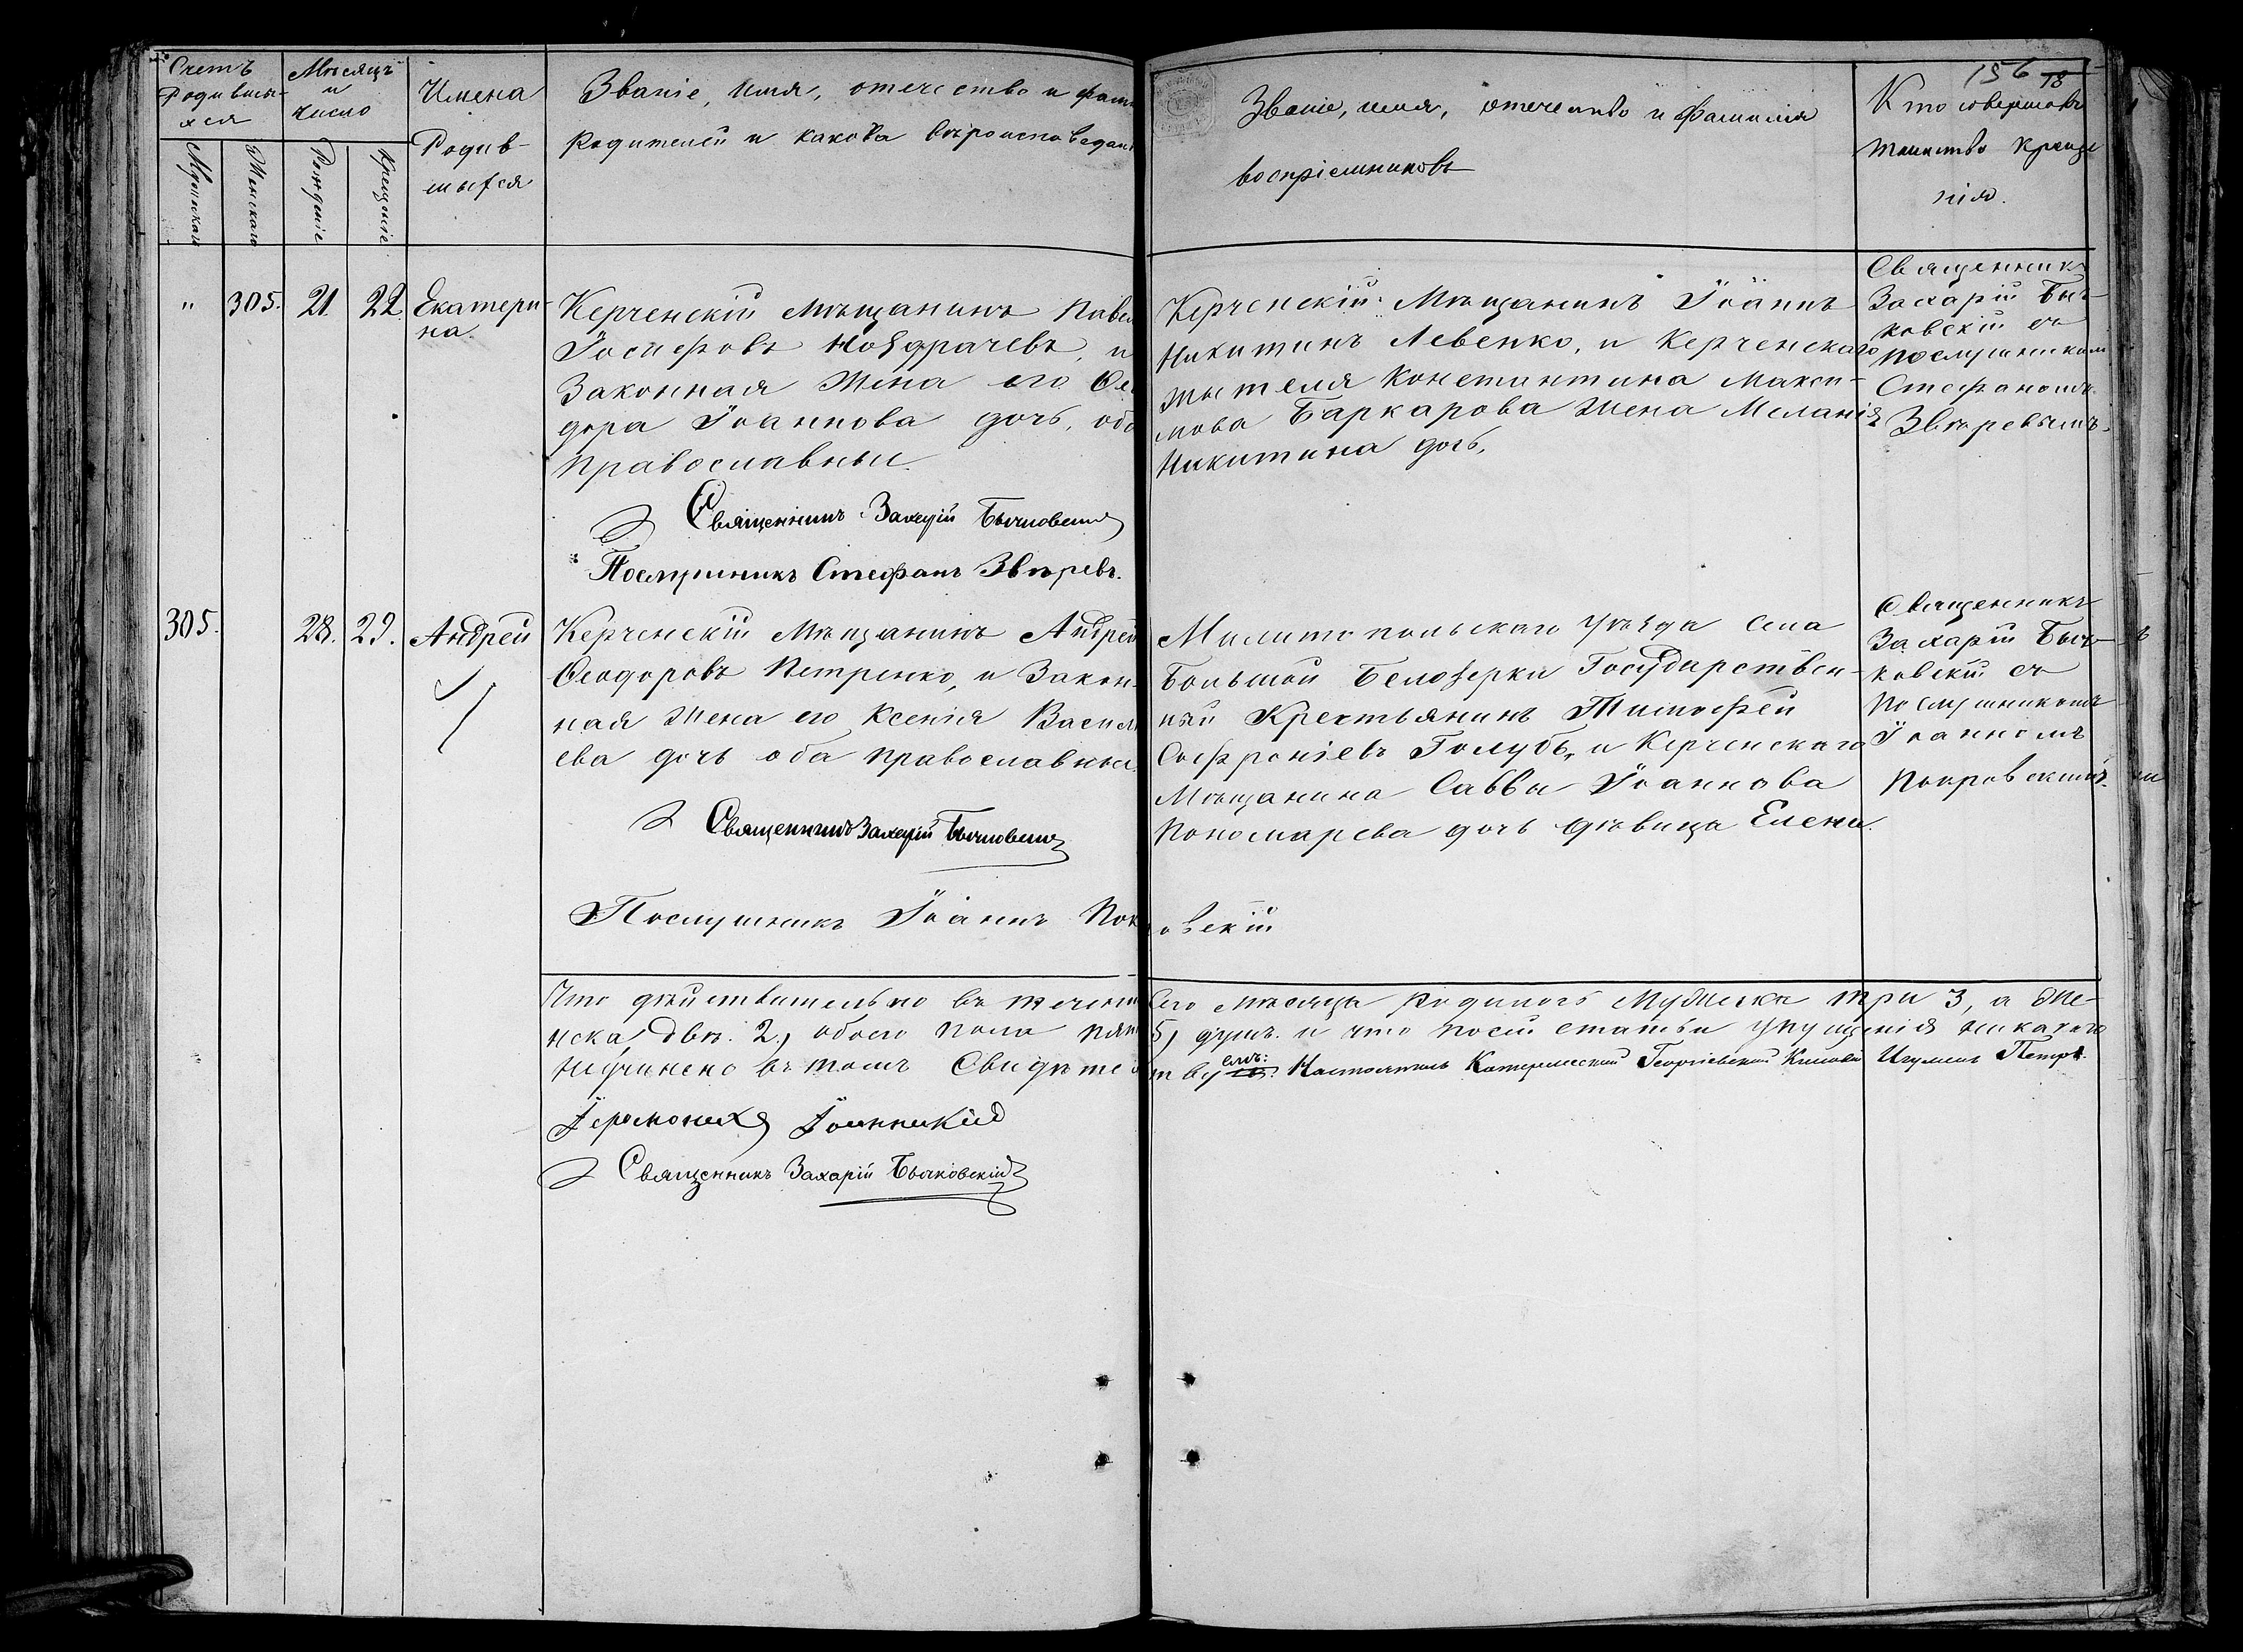 156 78
Счетъ
Родившы-
хся
Мѣсяцъ
и
число
Имена
Родив-
шыхся
Званіе, имя, отечество и фами
родителей и какова вѣроисповедан
Мужскаго
Женскаго
Рожденіе
Крещеніе
Званіе, имя, отечество и фамилія
воспріемниковъ
Кто совершалъ
таинство креще
нія.
" 305. 21. 22. Екатери-
на.
Керченскій Мѣщанинъ Павел
Іосифовъ Ноздрачевъ, и
Законная Жена его Ѳео
дора Іоаннова дочь, оба
православные.
Священникъ Захарій Бычковскій
Послушникъ Стефанъ Звѣревъ.
Керченскій Мѣщанинъ Іоаннъ
Никитинъ Левенко, и Керченскаго
жителя Константина Макси-
мова Баркарова жена Меланія
Никитина дочь.
Священникъ
Захарій Быч-
ковскій съ
послушникомъ
Стефаномъ
Звѣревымъ.
305. 28. 29. Андрей
Керченскій Мѣщанинъ Андрей
Ѳеодоровъ Петренко, и Закон-
ная Жена его Ксенія Василь
ева дочь оба православные.
Священникъ Захарій Бычковскій
Послушникъ Іоаннъ Пок
Мелитопольскаго уѣзда села
Большой Белозерки Государствен-
ный Крестьянинъ Тимофей
Софроніевъ Голубь, и Керченскаго
Мѣщанина Саввы Іоаннова
Пономарева дочь дѣвица Елена.
овскій
Священникъ
Захарій Быч-
ковскій съ
послушникомъ
Іоанномъ
Покровскимъ.
Что дѣйствительно въ течені
нска, двѣ. 2., обоего пола пят
неучинено въ томъ Свидѣте
Сего мѣсяца родилось Мужеска три 3, а Же-
5, душъ. и что посей статьи упущенія никакого
твуемъ: Настоятель Катерлесской Георгіевской Киновіи Игуменъ Петръ.
Іеромонахъ Іоанникій
Священникъ Захарій Бычковскій